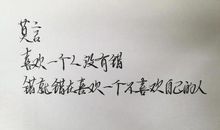 莫言
喜欢一个人没有错
错就错在喜欢一个不喜欢自己的人